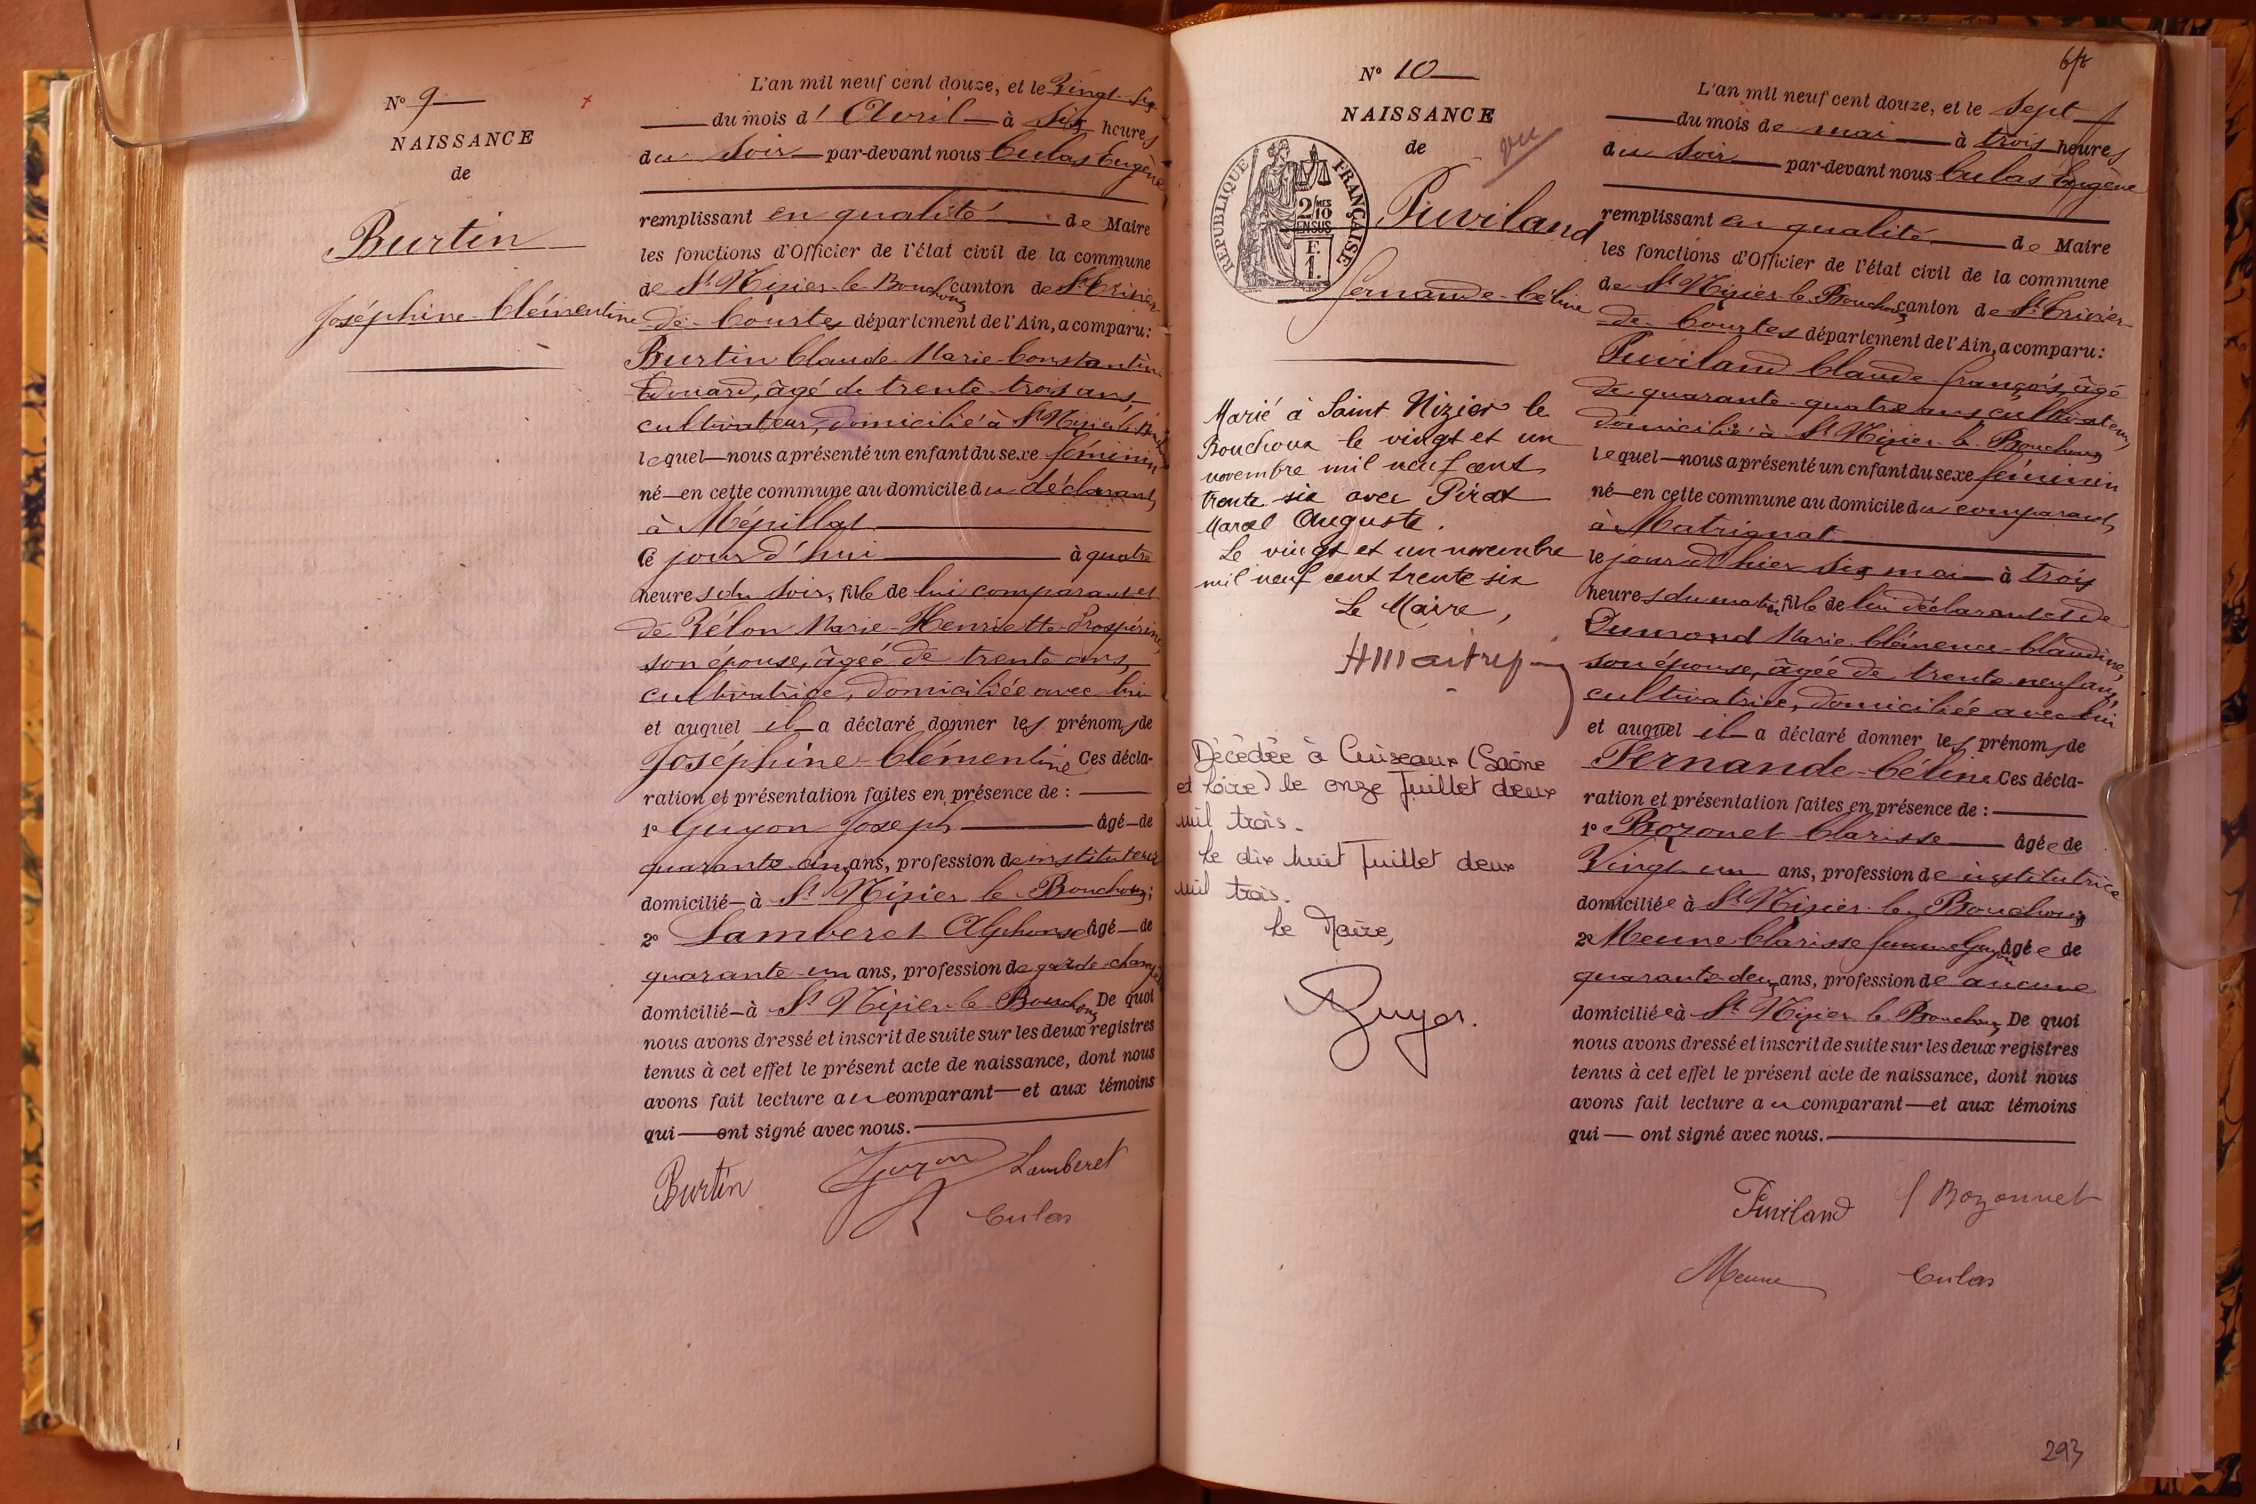 N° 9
NAISSANCE
de
Burtin
Joséphine Clémentine
L'an mil neuf cent douze, et le Vingt-six
du mois d' Avril à six heures
du soir par-devant nous Culas Eugène
remplissant en qualité de Maire
les fonctions d'Officier de l'état civil de la commune
de St Nizier-le-Bouchoux canton de St Trivier
de-Courtes département de l'Ain, a comparu:
Burtin Claude Marie Constantin
Edouard, âgé de trente-trois ans,
cultivateur, domicilié à St Nizier le Bouchoux
lequel nous a présenté un enfant du sexe féminin
né en cette commune au domicile du déclarant,
à Mépillat
ce jour d'hui à quatre
heures du soir, fille de lui comparant et
de Vélon Marie-Henriette-Prospérine,
son épouse, âgée de trente ans,
cultivatrice, domiciliée avec lui
et auquel il a déclaré donner les prénoms de
Joséphine-Clémentine Ces décla-
ration et présentation faites en présence de :
1° Guyon Joseph âgé de
quarante-un ans, profession de instituteur
domicilié à St Nizier le Bouchoux;
2° Lamberet Alphonse âgé de
quarante-un ans, profession de garde-champêtre
domicilié à St Nizier-le-Bouchoux De quoi
nous avons dressé et inscrit de suite sur les deux registres
tenus à cet effet le présent acte de naissance, dont nous
avons fait lecture au comparant et aux témoins
qui ont signé avec nous.
Burtin Guyon Lamberet
Culas
N° 10
NAISSANCE
de
vu
RÉPUBLIQUE FRANÇAISE
2/10 MES
EN SUS
F.
1.
Puviland
Fernande-Céline
Marié à Saint Nizier le
Bouchoux le vingt et un
novembre mil neuf cent
trente six avec Pirat
Marcel Auguste.
Le vingt et un novembre
mil neuf cent trente six
Le Maire,
Décédée à Cuiseaux (Saône
et Loire) le onze Juillet deux
mil trois.
Le dix huit Juillet deux
mil trois.
Le Maire,
L'an mil neuf cent douze, et le sept
du mois de mai à trois heures
du soir par-devant nous Culas Eugène
remplissant en qualité de Maire
les fonctions d'Officier de l'état civil de la commune
de St Nizier-le-Bouchoux canton de St Trivier
de Courtes département de l'Ain, a comparu:
Puviland Claude-François, âgé
de quarante-quatre ans cultivateur,
domicilié à St Nizier-le-Bouchoux
lequel nous a présenté un enfant du sexe féminin
né en cette commune au domicile du comparant,
à Matrignat
le jour d'hier six mai à trois
heures du matin fille de lui déclarant et de
Dumond Marie-Clémence-Claudine,
son épouse, âgée de trente-neuf ans,
cultivatrice, domiciliée avec lui
et auquel il a déclaré donner les prénoms de
Fernande-Céline Ces décla-
ration et présentation faites en présence de :
1° Bozonet Clarisse âgée de
Vingt-un ans, profession de institutrice
domiciliée à St Nizier-le-Bouchoux
2° Meune Clarisse femme Guyon âgée de
quarante-deux ans, profession de aucune
domiciliée à St Nizier le Bouchoux De quoi
nous avons dressé et inscrit de suite sur les deux registres
tenus à cet effet le présent acte de naissance, dont nous
avons fait lecture au comparant et aux témoins
qui ont signé avec nous.
Puviland Bozonnet
Meune Culas
293